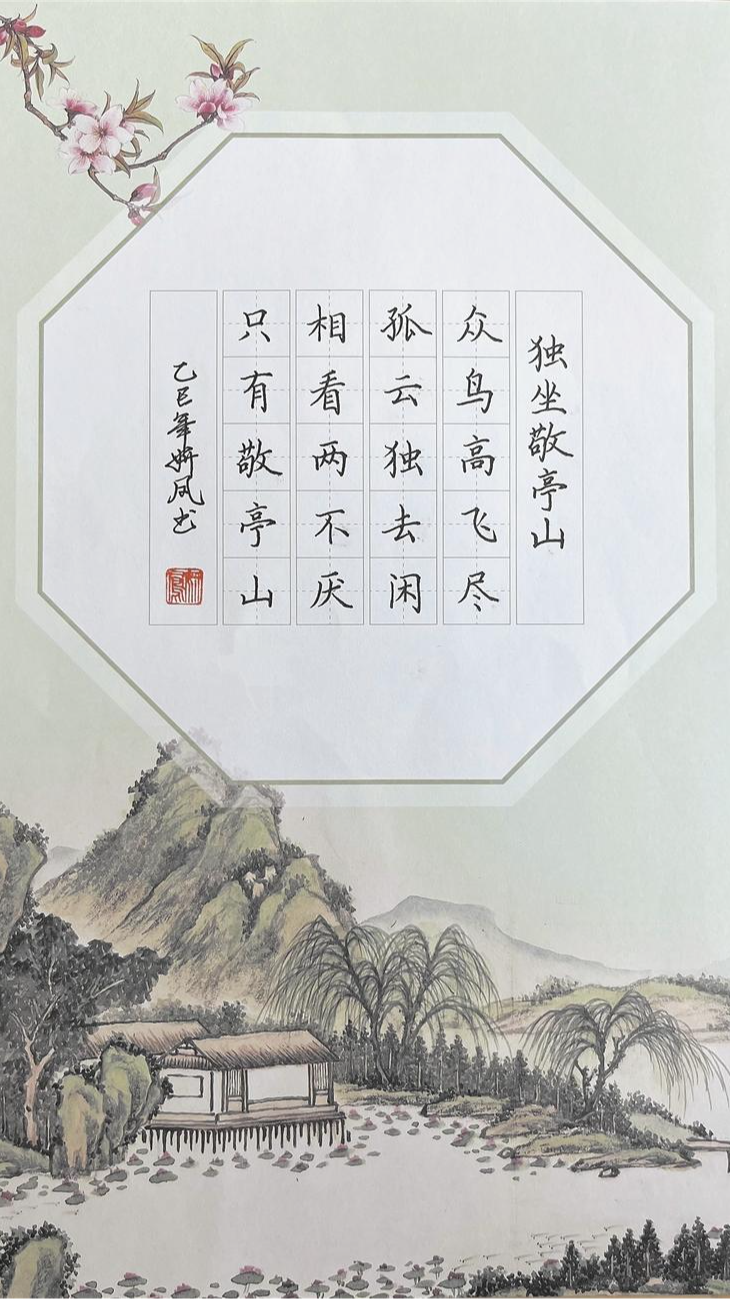 独坐敬亭山
众鸟高飞尽
孤云独去闲
相看两不厌
只有敬亭山
乙巳年妍凤书